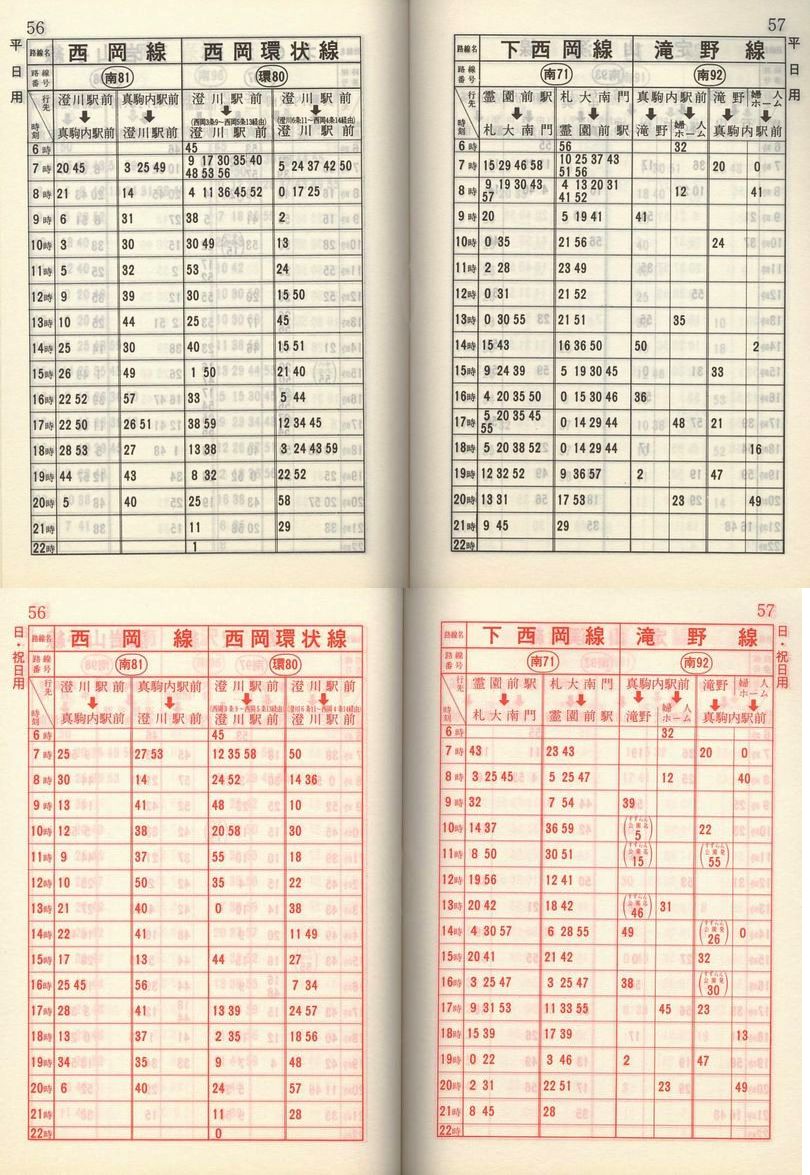 56
平日用
路線名 西岡線 西岡環状線
路線番号 南81 環80
行先 時刻 澄川駅前 真駒内駅前 澄川駅前 澄川駅前
(西岡3条9~西岡5条13経由) (澄川6条11~西岡4条14経由)
真駒内駅前 澄川駅前 澄川駅前 澄川駅前
6時 45
7時 20 45 3 25 49 9 17 30 35 40 5 24 37 42 50
48 53 56
8時 21 14 4 11 36 45 52 0 17 25
9時 6 31 38 2
10時 3 30 30 49 13
11時 5 32 53 24
12時 9 39 30 15 50
13時 10 44 25 45
14時 25 30 40 15 51
15時 26 49 1 50 21 40
16時 22 52 57 33 5 44
17時 22 50 26 51 38 59 12 34 45
18時 28 53 27 13 38 3 24 43 59
19時 44 43 8 32 22 52
20時 5 40 25 58
21時 11 29
22時 1
57
平日用
路線名 下西岡線 滝野線
路線番号 南71 南92
行先 時刻 霊園前駅 札大南門 真駒内駅前 滝野 婦人ホーム
札大南門 霊園前駅 滝野 婦人ホーム 真駒内駅前
6時 56 32
7時 15 29 46 58 10 25 37 43 20 0
51 56
8時 9 19 30 43 4 13 20 31 12 41
57 41 52
9時 20 5 19 41 41
10時 0 35 21 56 24
11時 2 28 23 49
12時 0 31 21 52
13時 0 30 55 21 51 35
14時 15 43 16 36 50 50 2
15時 9 24 39 5 19 30 45 33
16時 4 20 35 50 0 15 30 46 36
17時 5 20 35 45 0 14 29 44 48 21
55
18時 5 20 38 52 0 14 29 44 16
19時 12 32 52 9 36 57 2 47
20時 13 31 17 53 23 49
21時 9 45 29
22時
56
日・祝日用
路線名 西岡線 西岡環状線
路線番号 南81 環80
行先 時刻 澄川駅前 真駒内駅前 澄川駅前 澄川駅前
(西岡3条9~西岡5条13経由) (澄川6条11~西岡4条14経由)
真駒内駅前 澄川駅前 澄川駅前 澄川駅前
6時 45
7時 25 27 53 12 35 58 50
8時 30 14 24 52 14 36
9時 13 41 48 10
10時 12 38 20 58 30
11時 9 37 55 18
12時 10 50 35 22
13時 21 40 0 38
14時 22 41 11 49
15時 17 13 44 27
16時 25 45 56 7 34
17時 28 41 13 39 24 57
18時 13 37 2 35 18 56
19時 34 35 9 48
20時 6 40 24 57
21時 11 28
22時 0
57
日・祝日用
路線名 下西岡線 滝野線
路線番号 南71 南92
行先 時刻 霊園前駅 札大南門 真駒内駅前 滝野 婦人ホーム
札大南門 霊園前駅 滝野 婦人ホーム 真駒内駅前
6時 32
7時 43 23 43 20 0
8時 3 25 45 5 25 47 12 40
9時 32 7 54 39
10時 14 37 36 59 (5) 22
11時 8 50 30 51 (15) (すずらん公園発 55)
12時 19 56 12 41
13時 20 42 18 42 (46) 31
14時 4 30 57 6 28 55 49 (すずらん公園発 26) 0
15時 20 41 21 42 32
16時 3 25 47 3 25 47 38 (すずらん公園発 30)
17時 9 31 53 11 33 55 45 23
18時 15 39 17 39 13
19時 0 22 3 46 2 47
20時 2 31 22 51 23 49
21時 8 45 28
22時